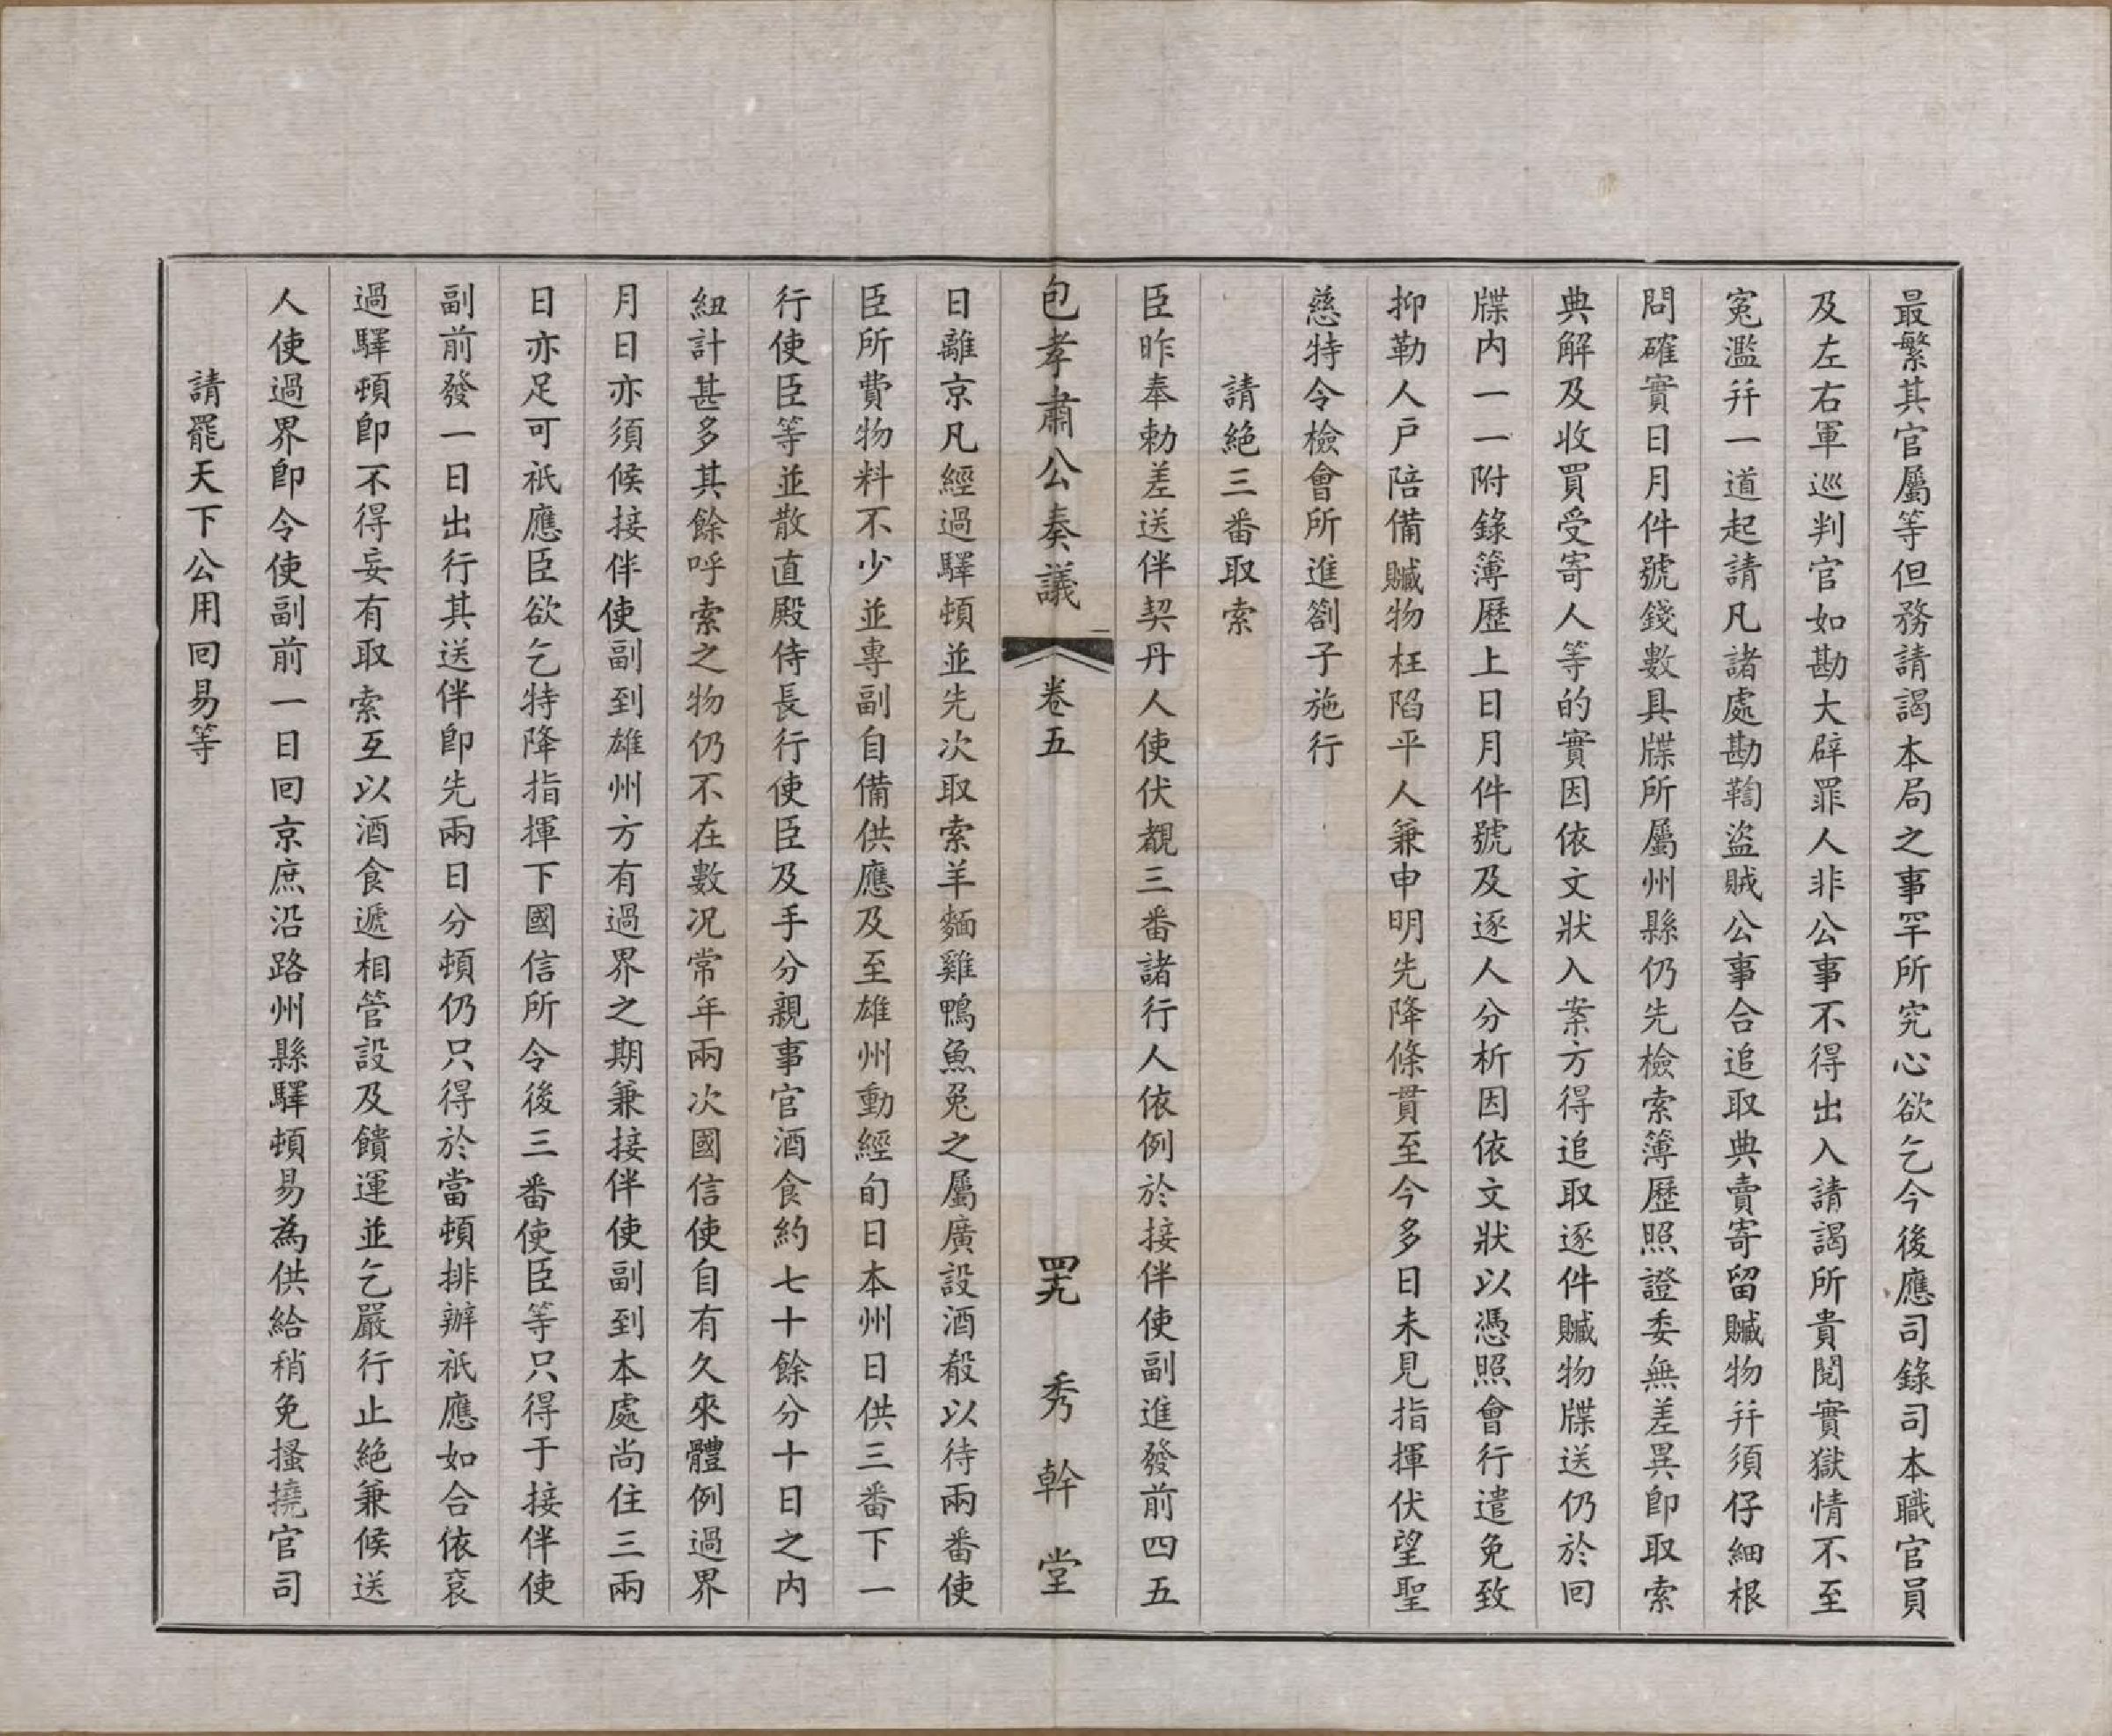 最繁其官屬等但務請謁本局之事罕所究心欲乞今後應司錄司本職官員
及左右軍巡判官如勘大辟罪人非公事不得出入請謁所貴閱實獄情不至
冤濫幷一道起請凡諸處勘鞫盜賊公事合追取典賣寄留贓物幷須仔細根
問確實日月件號錢數具牒所屬州縣仍先檢索簿歷照證委無差異卽取索
典解及收買受寄人等的實因依文狀入案方得追取逐件贓物牒送仍於回
牒内一一附錄簿歷上日月件號及逐人分析因依文狀以憑照會行遣免致
抑勒人戶陪備贓物枉陷平人兼申明先降條貫至今多日未見指揮伏望聖
慈特令檢會所進劄子施行
請絶三番取索
臣昨奉勅差送伴契丹人使伏覩三番諸行人依例於接伴使副進發前四五
包孝肅公奏議 卷五 四九 秀幹堂
日離京凡經過驛頓並先次取索羊麵雞鴨魚兔之屬廣設酒殽以待兩番使
臣所費物料不少並專副自備供應及至雄州動經旬日本州日供三番下一
行使臣等並散直殿侍長行使臣及手分親事官酒食約七十餘分十日之内
紐計甚多其餘呼索之物仍不在數况常年兩次國信使自有久來體例過界
月日亦須候接伴使副到雄州方有過界之期兼接伴使副到本處尚住三兩
日亦足可祇應臣欲乞特降指揮下國信所令後三番使臣等只得于接伴使
副前發一日出行其送伴卽先兩日分頓仍只得於當頓排辦祇應如合依衮
過驛頓卽不得妄有取索互以酒食遞相管設及饋運並乞嚴行止絶兼候送
人使過界卽令使副前一日回京庶沿路州縣驛頓易為供給稍免搔撓官司
請罷天下公用回易等